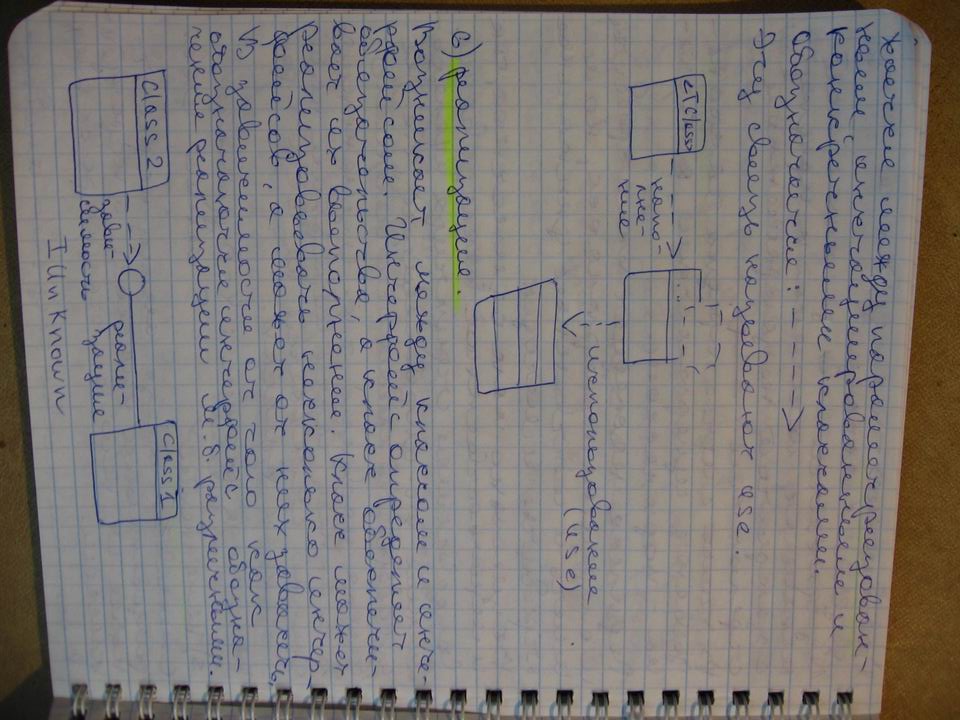 жается между параметризован-
ными, инстанцированными и
конкретными классами.
Обозначение: - - - ->
Эту связь называют use.
<TClass>
напо-
лне-
ние
использование
(use)
в) реализация.
Возникает между классом и инте-
рфейсом. Интерфейс определяет
обязательства, а класс обеспечи-
вает их выполнение. Класс может
реализовывать несколько интер-
фейсов, а может от них зависеть.
В зависимости от того как
обозначаются интерфейс обозна-
чения реализации м.б. различными.
Class 2
зави-
симость
реали-
зация
Class 1
IUnKnown